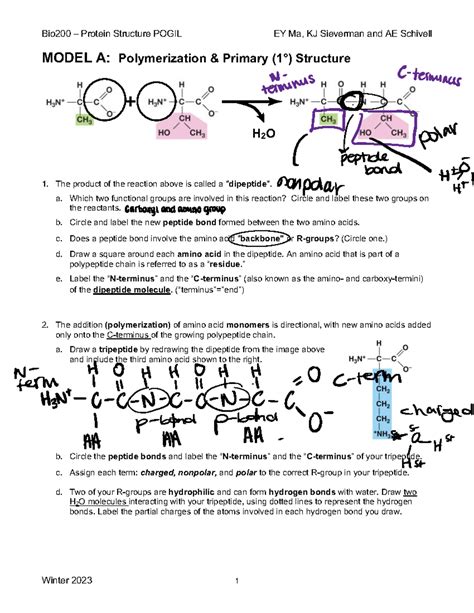 Bio200 – Protein Structure POGIL EY Ma, KJ Sieverman and AE Schivell
MODEL A: Polymerization & Primary (1°) Structure
N-terminus
C-terminus
H₃N⁺ – C – C O O⁻ H CH₃
+
H₃N⁺ – C – C O O⁻ H CH HO CH₃
H₂O
H₃N⁺ C C N C C O O⁻ H CH₃ CH HO CH₃
polar
peptide bond
nonpolar
1. The product of the reaction above is called a "dipeptide".
a. Which two functional groups are involved in this reaction? Circle and label these two groups on
the reactants. Carboxyl and amino group
b. Circle and label the new peptide bond formed between the two amino acids.
c. Does a peptide bond involve the amino acid "backbone" or R-groups? (Circle one.)
d. Draw a square around each amino acid in the dipeptide. An amino acid that is part of a
polypeptide chain is referred to as a "residue."
e. Label the "N-terminus" and the "C-terminus" (also known as the amino- and carboxy-termini)
of the dipeptide molecule. ("terminus"="end")
2. The addition (polymerization) of amino acid monomers is directional, with new amino acids added
only onto the C-terminus of the growing polypeptide chain.
a. Draw a tripeptide by redrawing the dipeptide from the image above
and include the third amino acid shown to the right.
H₃N⁺ – C – C O O⁻ H CH₂ CH₂ CH₂ CH₂ ⁺NH₃
N-term
H O H H O H H
H₃N⁺ – C – C – N – C – C – N – C – C O O⁻
C-term
p-bond p-bond
AA AA AA
charged
b. Circle the peptide bonds and label the "N-terminus" and the "C-terminus" of your tripeptide.
c. Assign each term: charged, nonpolar, and polar to the correct R-group in your tripeptide.
d. Two of your R-groups are hydrophilic and can form hydrogen bonds with water. Draw two
H₂O molecules interacting with your tripeptide, using dotted lines to represent the hydrogen
bonds. Label the partial charges of the atoms involved in each hydrogen bond you draw.
Winter 2023 1